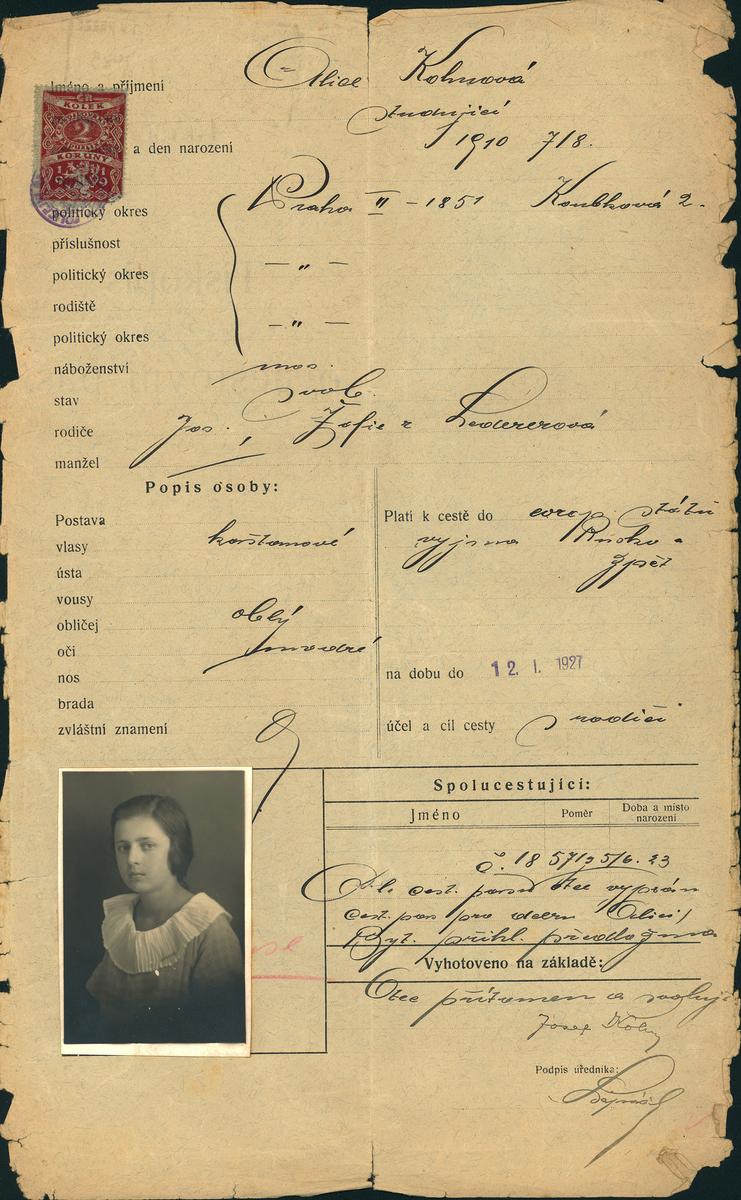 Jméno a příjmení Alice Kohnová
studující
a den narození 1910 7/8.
ČR
KOLEK
2
KORUNY
politický okres Praha II - 1851 Koubková 2.
příslušnost
politický okres — " —
rodiště
politický okres — " —
náboženství mos.
stav svob.
rodiče Jos. Žofie r Ledererová
manžel
Popis osoby:
Postava
vlasy kaštanové
ústa
vousy
obličej oblý
oči modré
nos
brada
zvláštní znamení
Platí k cestě do evrop. států
vyjma Ruska a
zpět
na dobu do 12. I. 1927
účel a cíl cesty s rodiči
Spolucestující:
Jméno Poměr Doba a místo narození
č. 18 571 5/6. 23
Dle cest. pasu otce vypsán
cest. pas pro dceru Alici
Byt. přihl. předložena
Vyhotoveno na základě:
Otec přítomen a svoluje
Josef Kohn
Podpis úředníka: